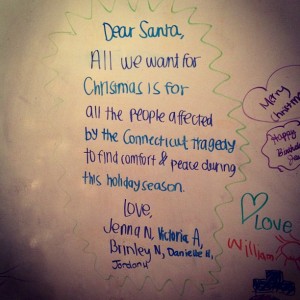 Dear Santa,
All we want for
Christmas is for
all the people affected
by the Connecticut tragedy
to find comfort & peace during
this holiday season.
Love,
Jenna N, Victoria A,
Brinley N, Danielle H,
Jordan H
Merry
Christmas
Happy
Love
William